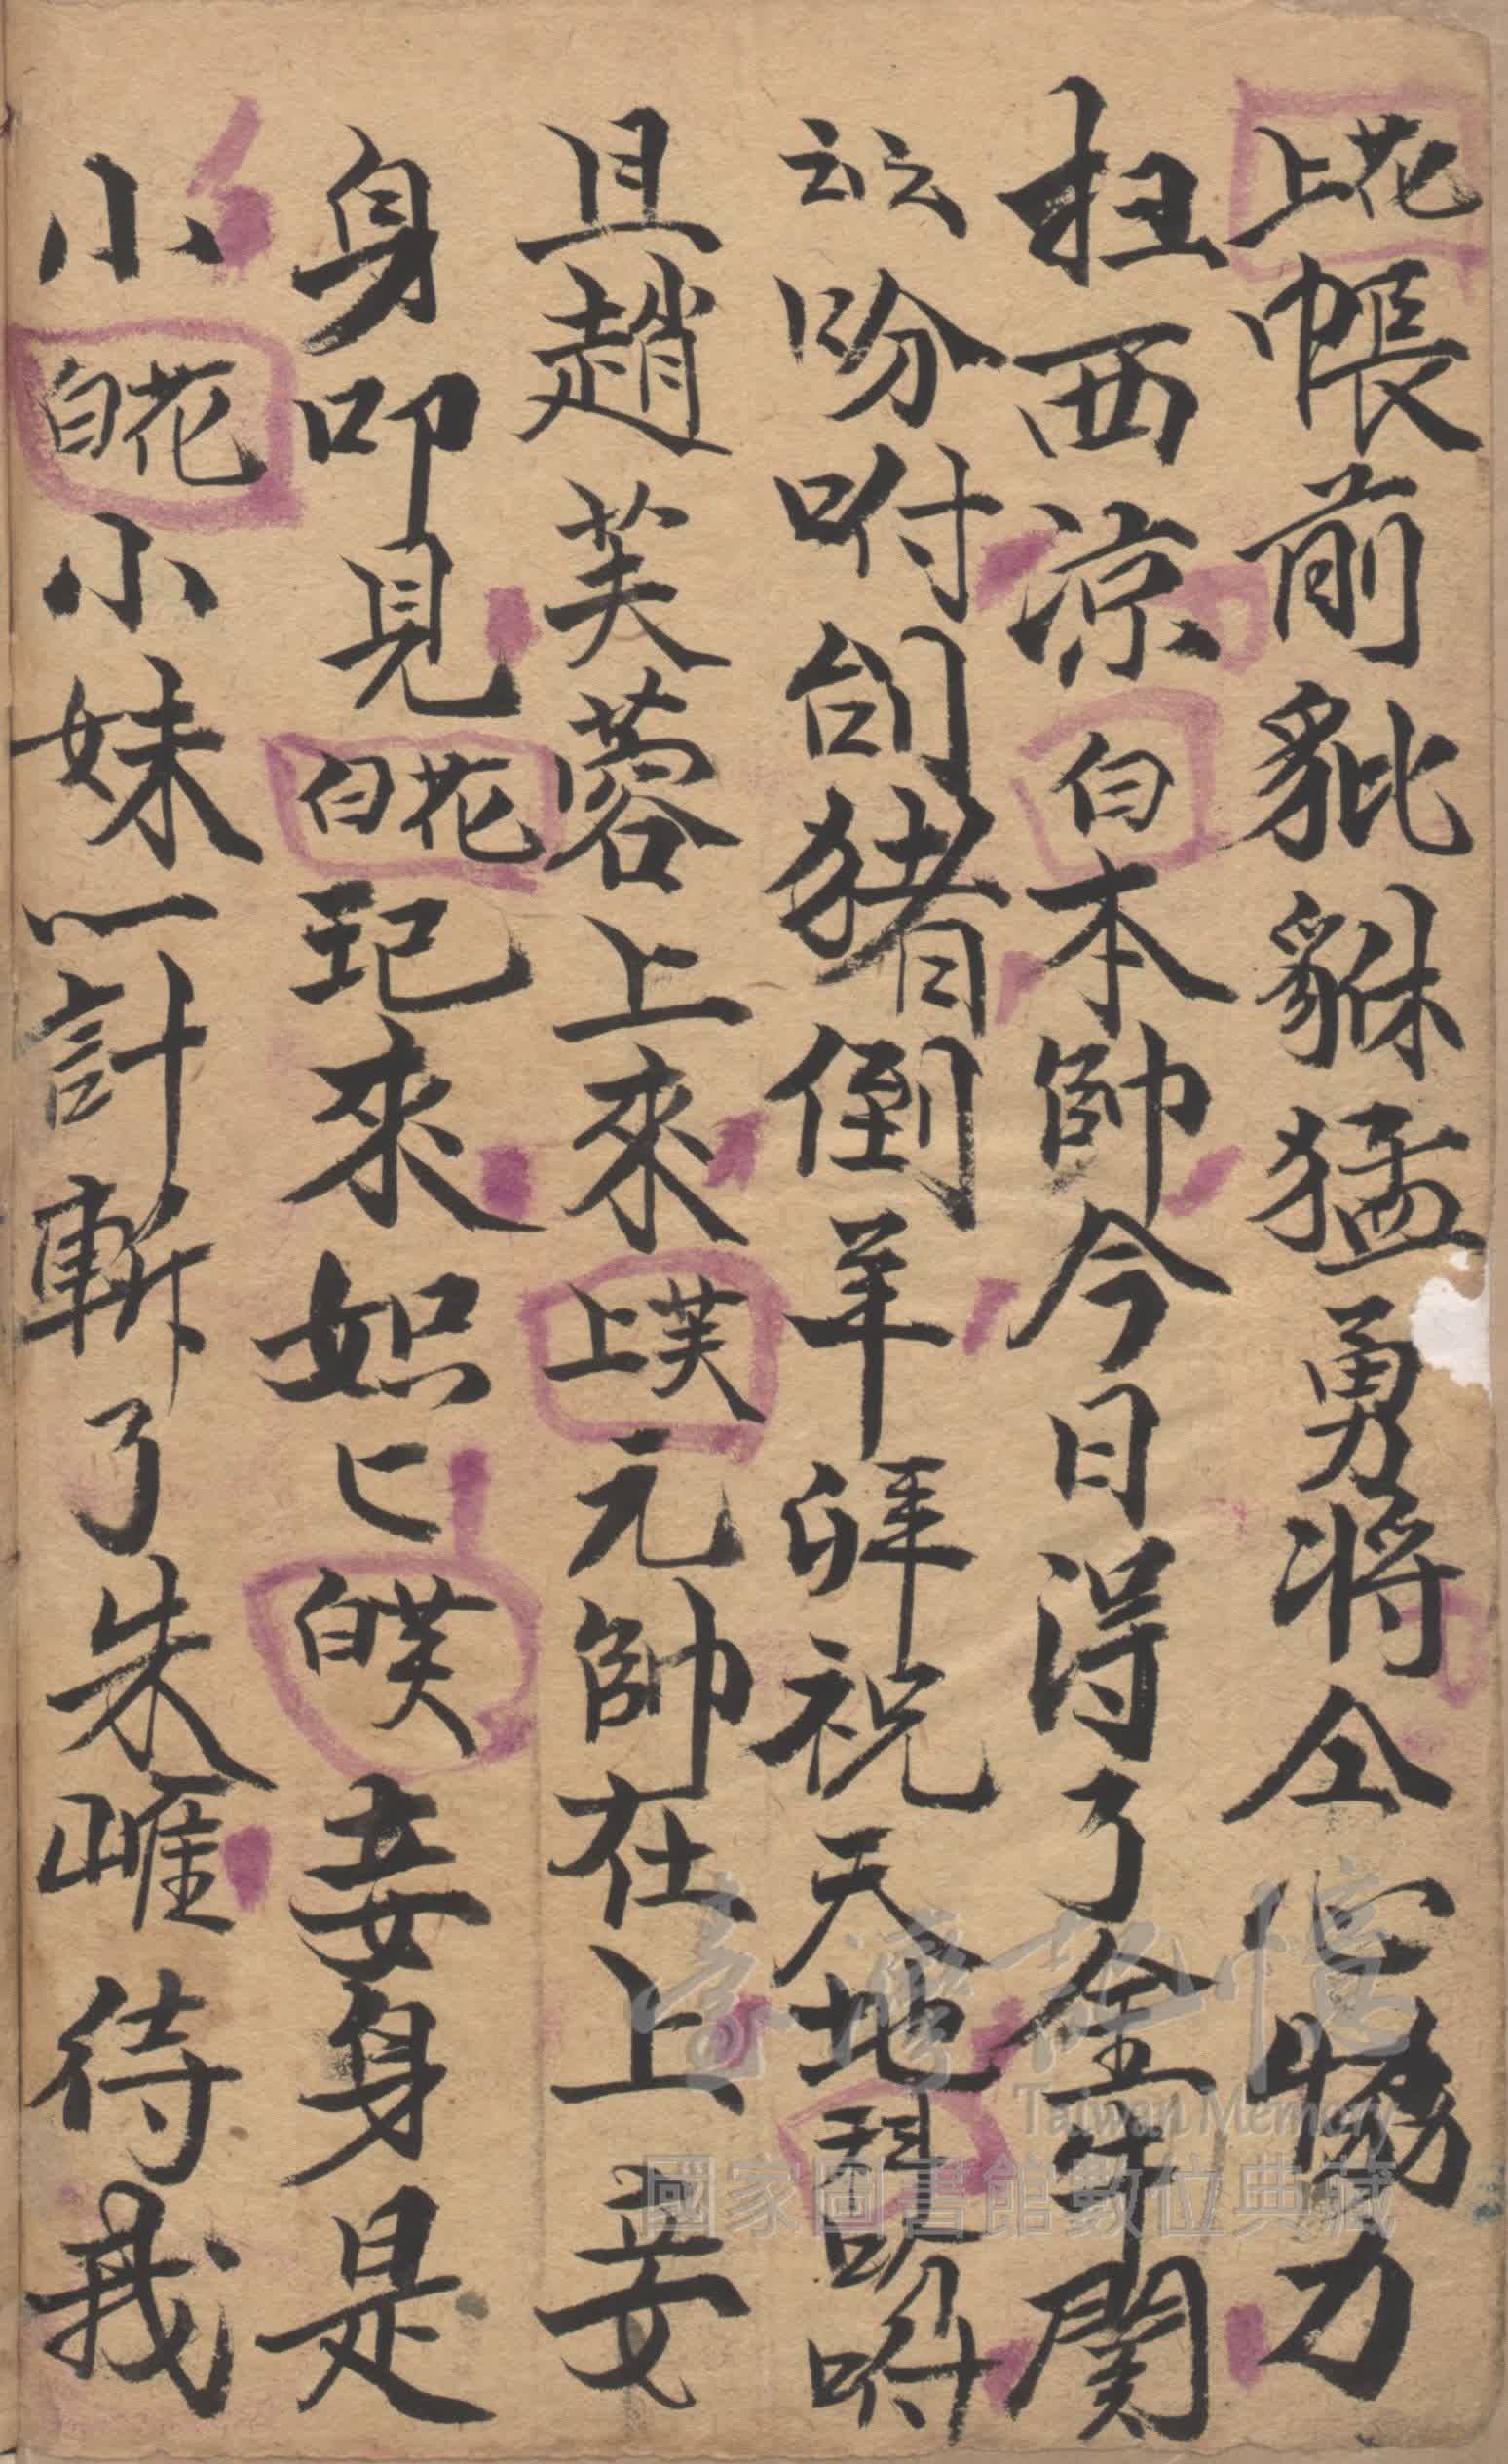 上花帳前豼貅猛勇將仝心惱力
枉西凉白本帥今日得了金牛関
云云吩咐刣猪倒羊拜祝天地科吩咐
且趙芙蓉上來上芙元帥在上妾
身叩見白花玘來如匕白芙妾身是
小白花小妹一計斬了朱雎待我
臺灣記憶
Taiwan Memory
國家圖書館數位典藏